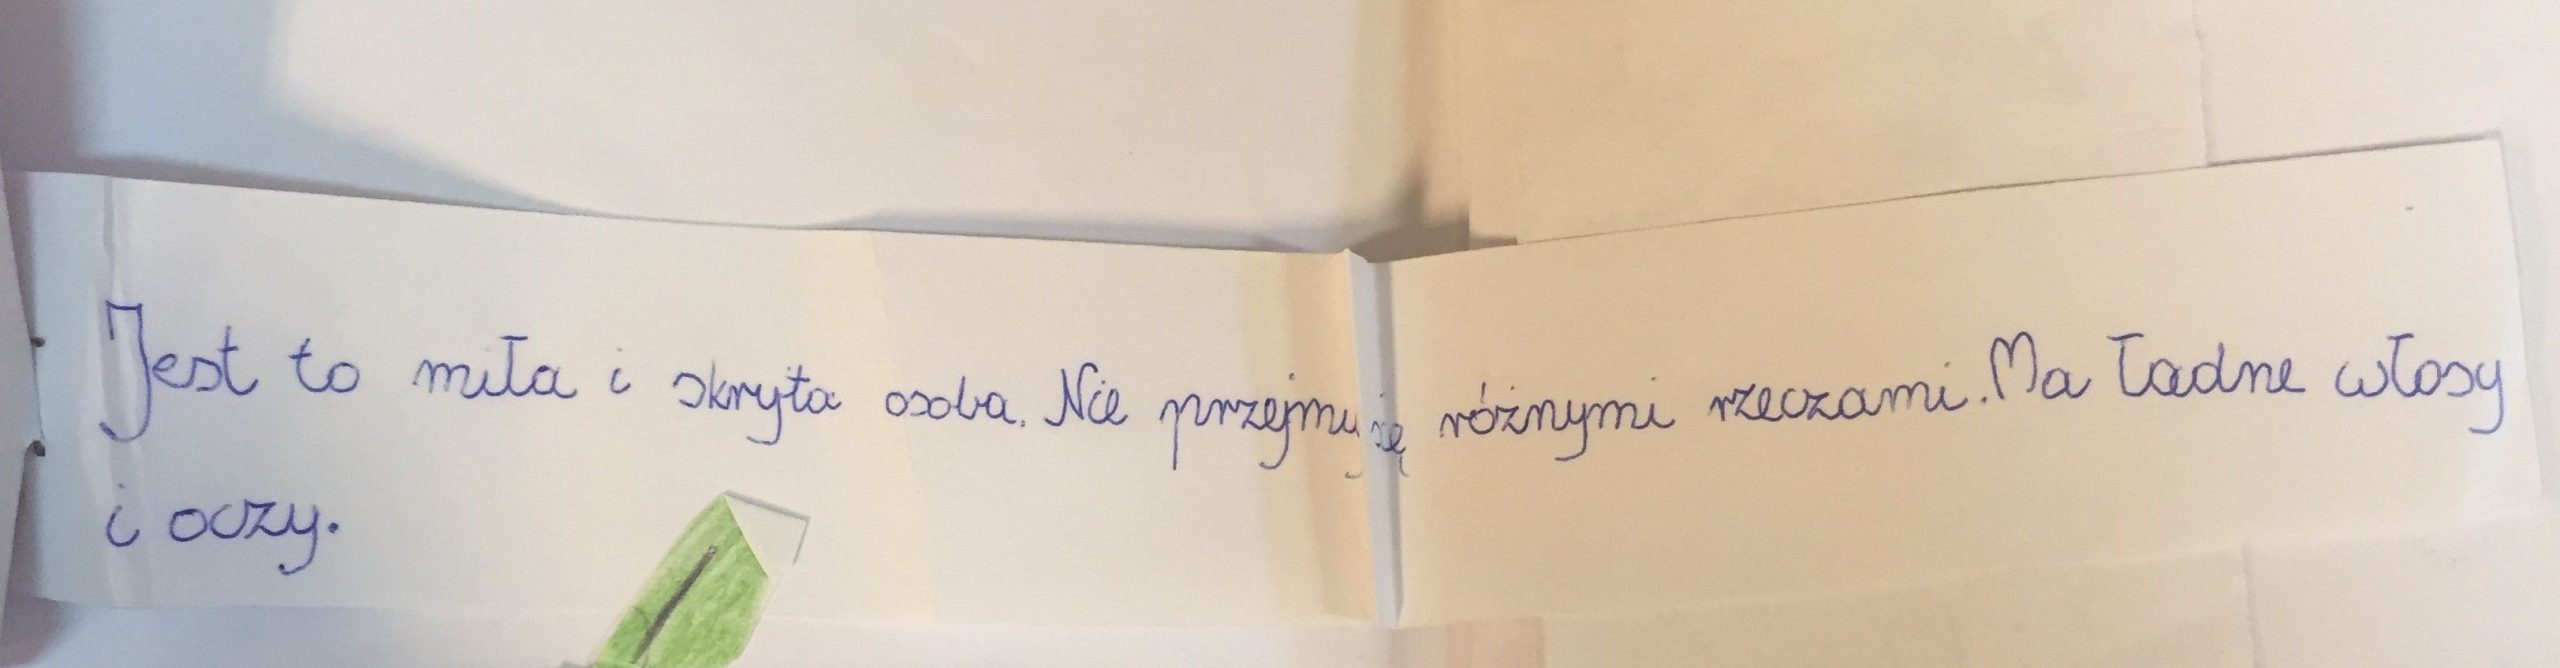 Jest to miła i skryta osoba. Nie przejmuje się różnymi rzeczami. Ma ładne włosy
i oczy.